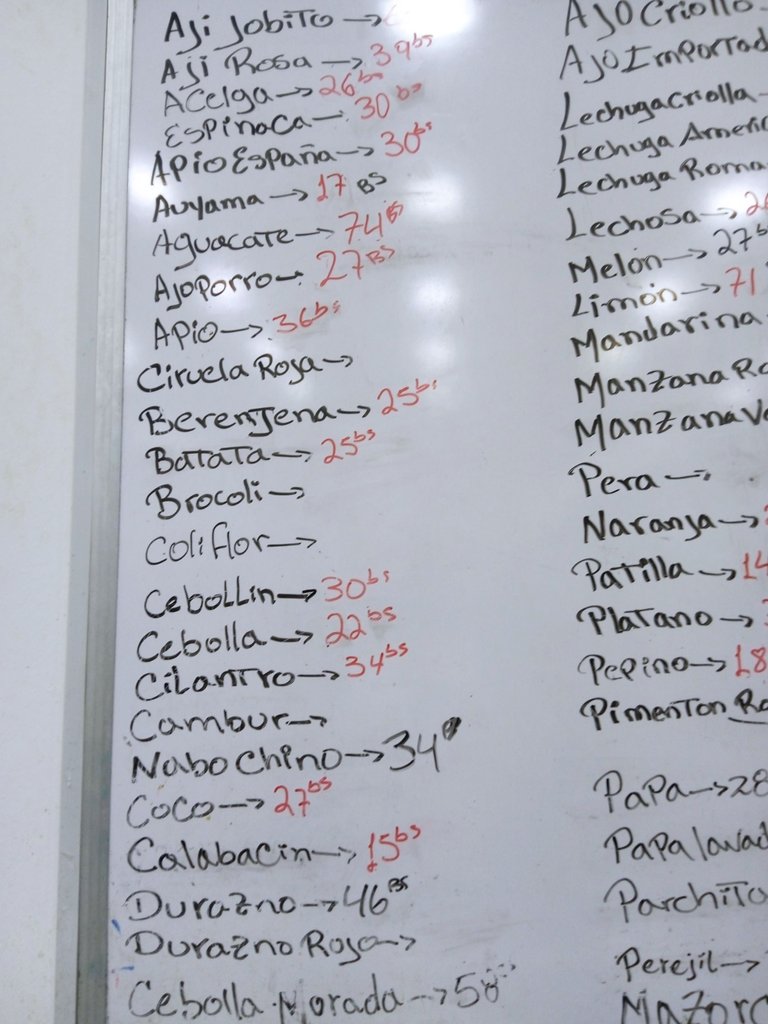 Aji Jobito →
Aji Rosa → 39 bs
Acelga → 26 bs
Espinaca → 30 bs
Apio España → 30 bs
Auyama → 17 BS
Aguacate → 74 B
Ajoporro → 27 BS
Apio → 36 bs
Ciruela Roja →
Berenjena → 25 bs
Batata → 25 bs
Brocoli →
Coliflor →
Cebollin → 30 bs
Cebolla → 22 bs
Cilantro → 34 bs
Cambur →
Nabo Chino → 34
Coco → 27 bs
Calabacin → 15 bs
Durazno → 46 BS
Durazno Rojo →
Cebolla Morada →
Ajo Criollo
Ajo Importad
Lechuga criolla
Lechuga Americ
Lechuga Roma
Lechosa →
Melón → 27 b
Limón → 71
Mandarina
Manzana Ro
Manzana Ve
Pera →
Naranja →
Patilla → 14
Platano →
Pepino → 18
Pimenton Ro
Papa → 28
Papa lavad
Parchita
Perejil →
Mazorc